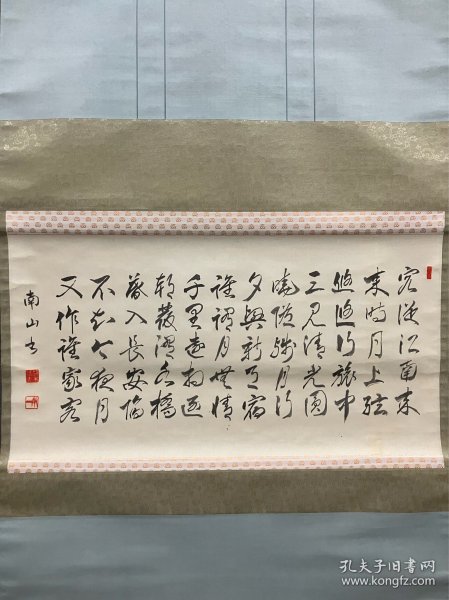 客從江南來
來時月上弦
悠悠行旅中
三見清光圓
曉隨殘月行
夕與新月宿
誰謂月無情
千里遠相逐
朝發渭水橋
暮入長安陌
不知今夜月
又作誰家客
南山書
孔夫子旧书网
www.kongfz.com